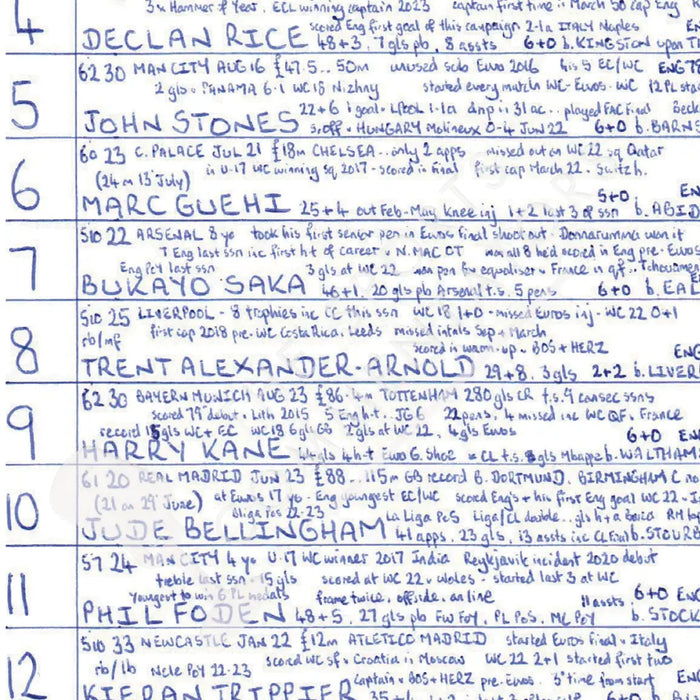 4
3x Hammer of Year, ECL winning captain 2023 captain first time in March 50 cap Eng
scored Eng first goal of this campaign 2-1 a ITALY Naples
DECLAN RICE 48+3, 7 gls pb, 8 assts 6+0 b. KINGSTON upon
5
62 30 MAN CITY AUG 16 £47.5.. 50m unused sub Euro 2016 4 is 5 EC/WC ENG
2 gls v PANAMA 6-1 WC 18 Nizhny started every match WC-Euros-WC 12 PL sta
22+6 1 goal v Lpool 1-1 a dnp in 31 ac.. played FAC Final
JOHN STONES s.off v HUNGARY Molineux 0-4 Jun 22 6+0 b. BARNS
6
60 23 C. PALACE JUL 21 £18m CHELSEA... only 2 apps missed out on WC 22 sq Qatar
(24 on 13 July) in U-17 WC winning sq 2017 - scored in final first cap March 22 v Switz.
5+0
MARC GUEHI 25+4 out Feb-May knee inj 1+2 last 3 of ssn b. ABID
7
510 22 ARSENAL 8 yo took his first senior pen in Euros final shoot out - Donnarumma won it
7 Eng last ssn inc first h.t of career v N. MAC OT won all 8 he'd scored in Eng pre-Euros
Eng PoY last ssn 3 gls at WC 22 won pen for equaliser v France in q.f. - Tchouameni
BUKAYO SAKA 46+1, 20 gls pb Arsenal t.s. 5 pens 6+0 b. EAL
8
510 25 LIVERPOOL - 8 trophies inc CC this ssn WC 18 1+0 - missed Euros inj - WC 22 0+1
rb/mf first cap 2018 pre-WC Costa Rica, Leeds missed intals Sep + March
scored in warm-up v BOS + HERZ
TRENT ALEXANDER-ARNOLD 29+8, 3 gls 2+2 b. LIVER
9
62 30 BAYERN MUNICH AUG 23 £86.4m TOTTENHAM 280 gls CR t.s. 9 consec ssns
scored 79" debut v Lith 2015 5 Eng h.t. JG 6 22 pens, 4 missed inc WC QF v France
record 15 gls WC + EC WC 18 6 gls GB 2 gls at WC 22, 4 gls Euros 6+0
HARRY KANE 44 gls 4 h-t Euro G. Shoe = CL t.s. 8 gls Mbappe b. WALTHAM
10
61 20 REAL MADRID JUN 23 £88... 115m GB record B. DORTMUND, BIRMINGHAM C
(21 on 29 June) at Euros 17 yo - Eng youngest EC/WC scored Eng's + his first Eng goal WC 22 v
Bliga PoS 22-23 La Liga PoS Liga/CL double..
JUDE BELLINGHAM 41 apps, 23 gls, 13 assts inc CL Final b. STOURB
11
57 24 MAN CITY 4 yo U-17 WC winner 2017 India Reykjavik incident 2020 debut
treble last ssn - 15 gls scored at WC 22 v Wales - started last 3 at WC
Youngest to win 6 PL medals frame twice, offside, on line 11 assts 6+0 ENG
PHIL FODEN 48+5, 27 gls pb FW FoY, PL PoS, MC PoY b. STOC
12
510 33 NEWCASTLE JAN 22 £12m ATLETICO MADRID started Euros Final v Italy
rb/lb Ncle PoY 22-23 scored WC sf v Croatia in Moscow WC 22 2+1 started first two
captain v BOS + HERZ pre-Euros 3rd time from start
KIERAN TRIPPIER